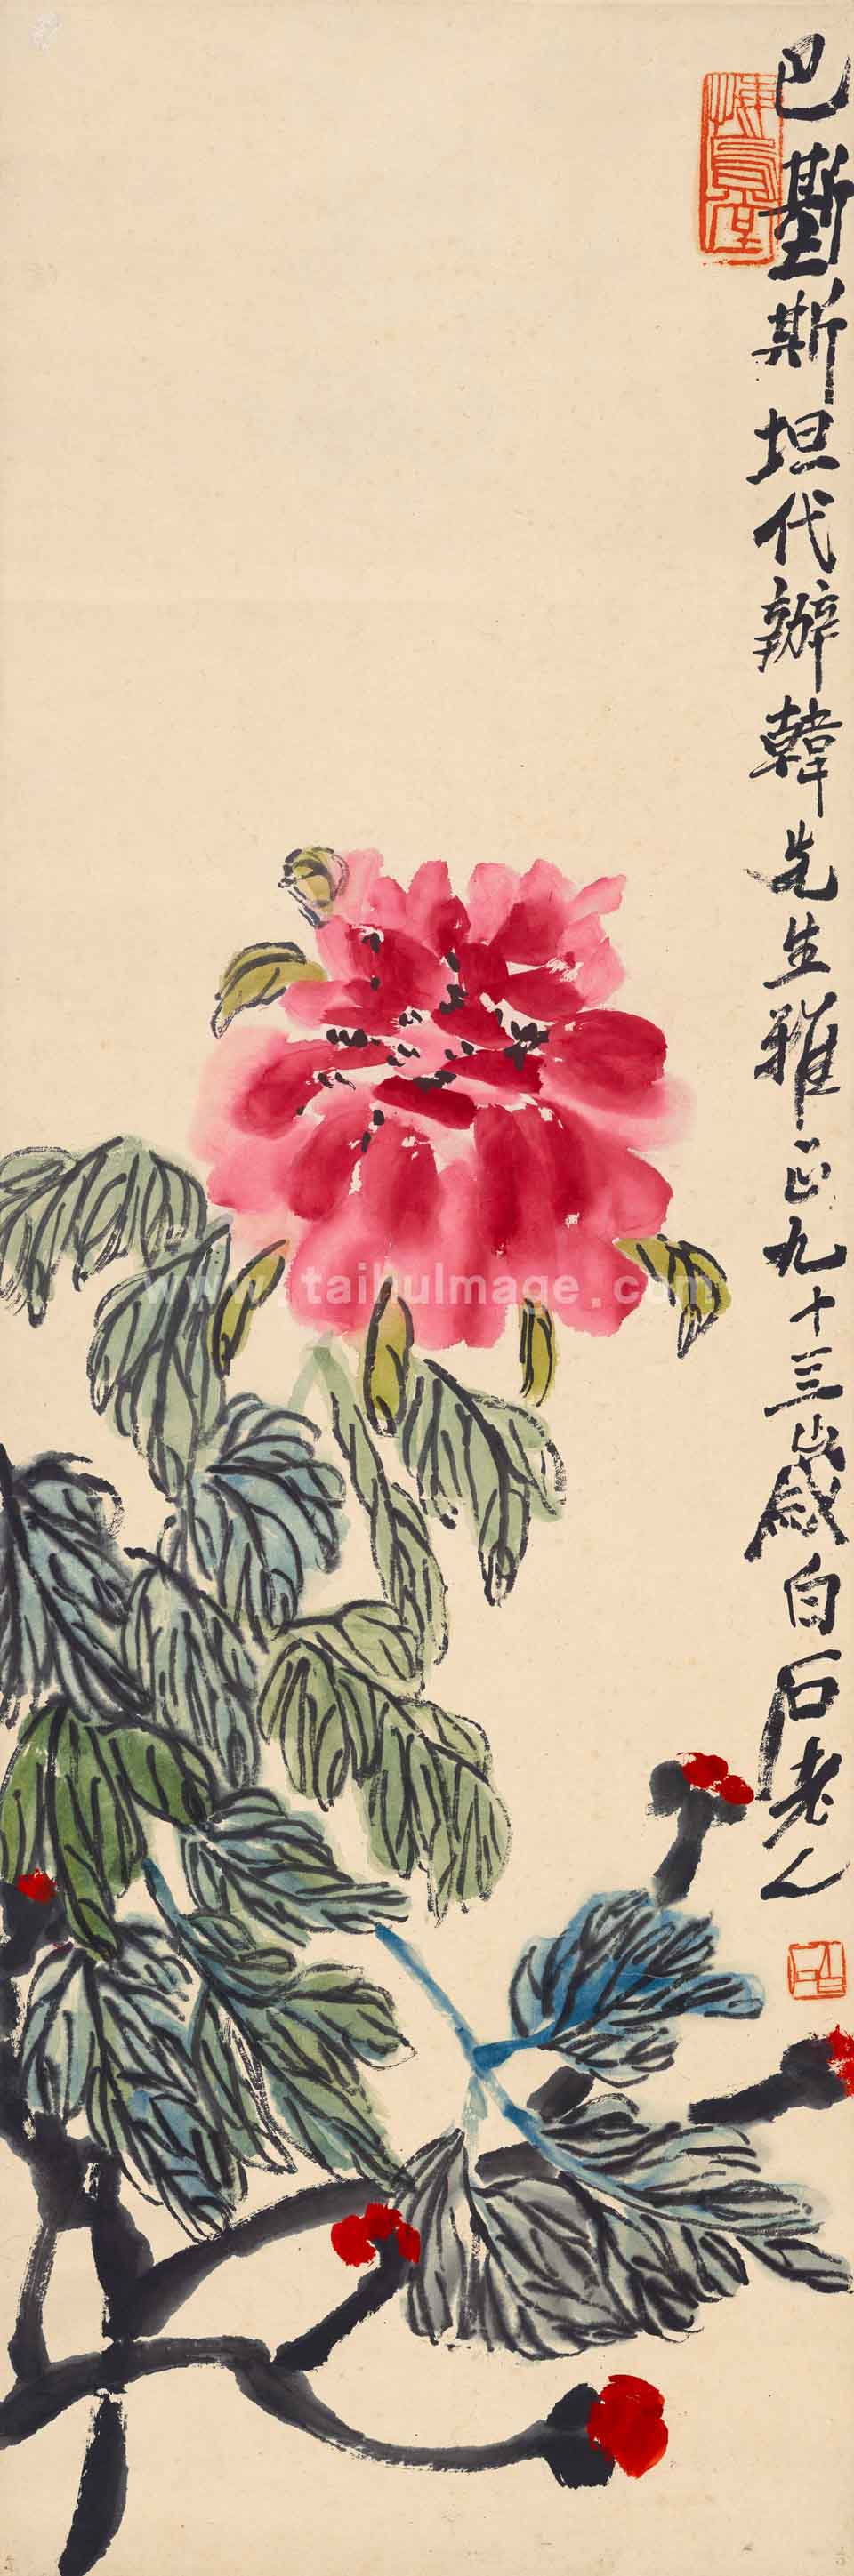 巴基斯坦代辦韓先生雅正九十三歲白石老人
www.taihuImage.com